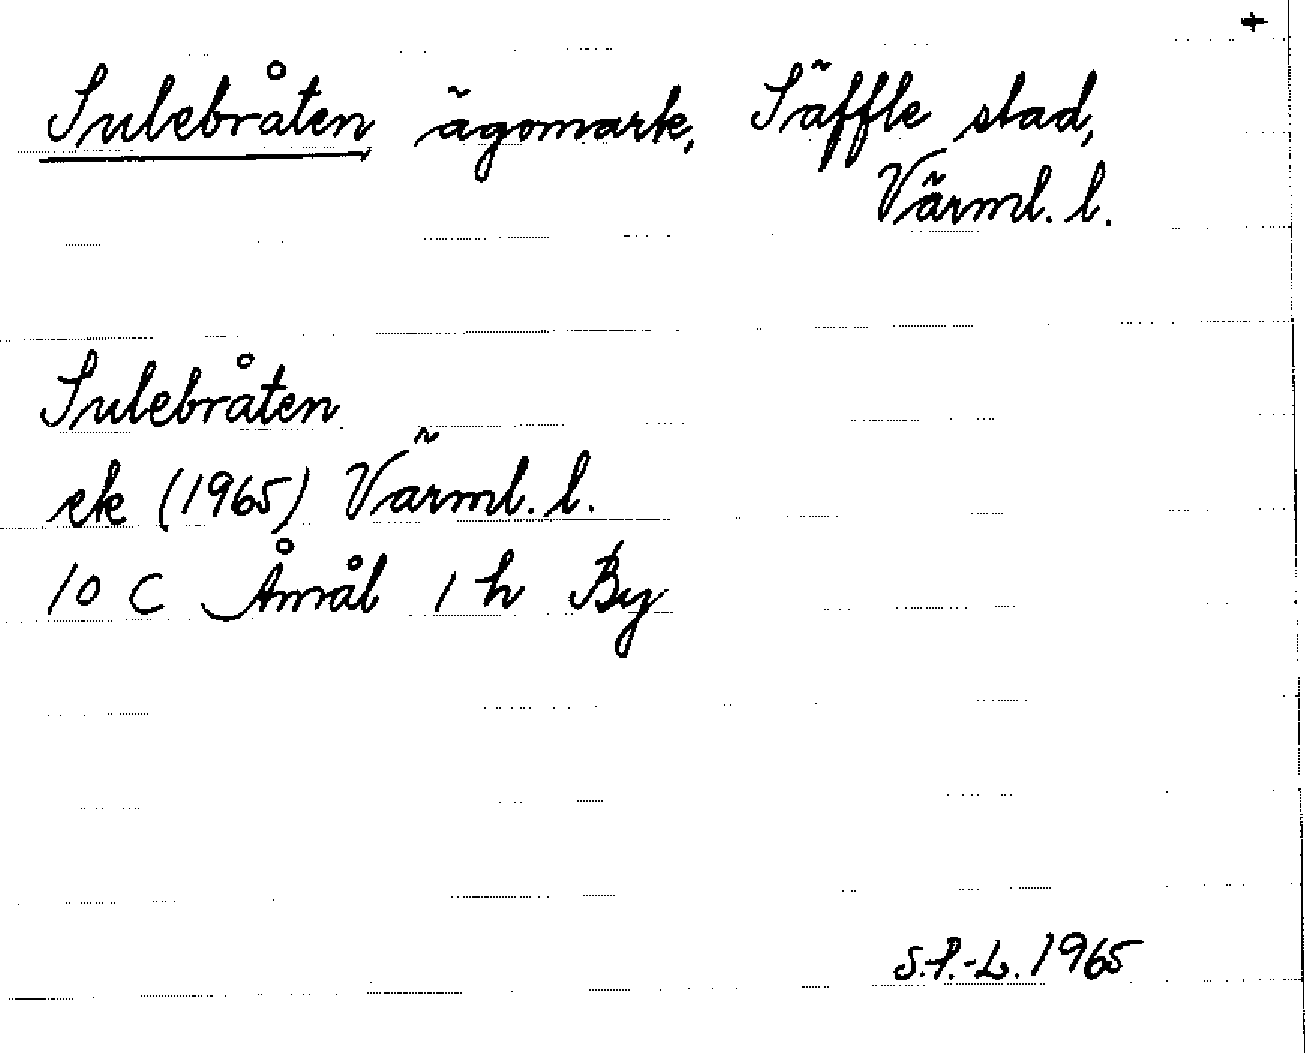 +
Sulebråten ägomark, Säffle stad,
Värml. l.
Sulebråten
ek (1965) Värml. l.
10 C Åmål 1 h By
S.P.-L. 1965